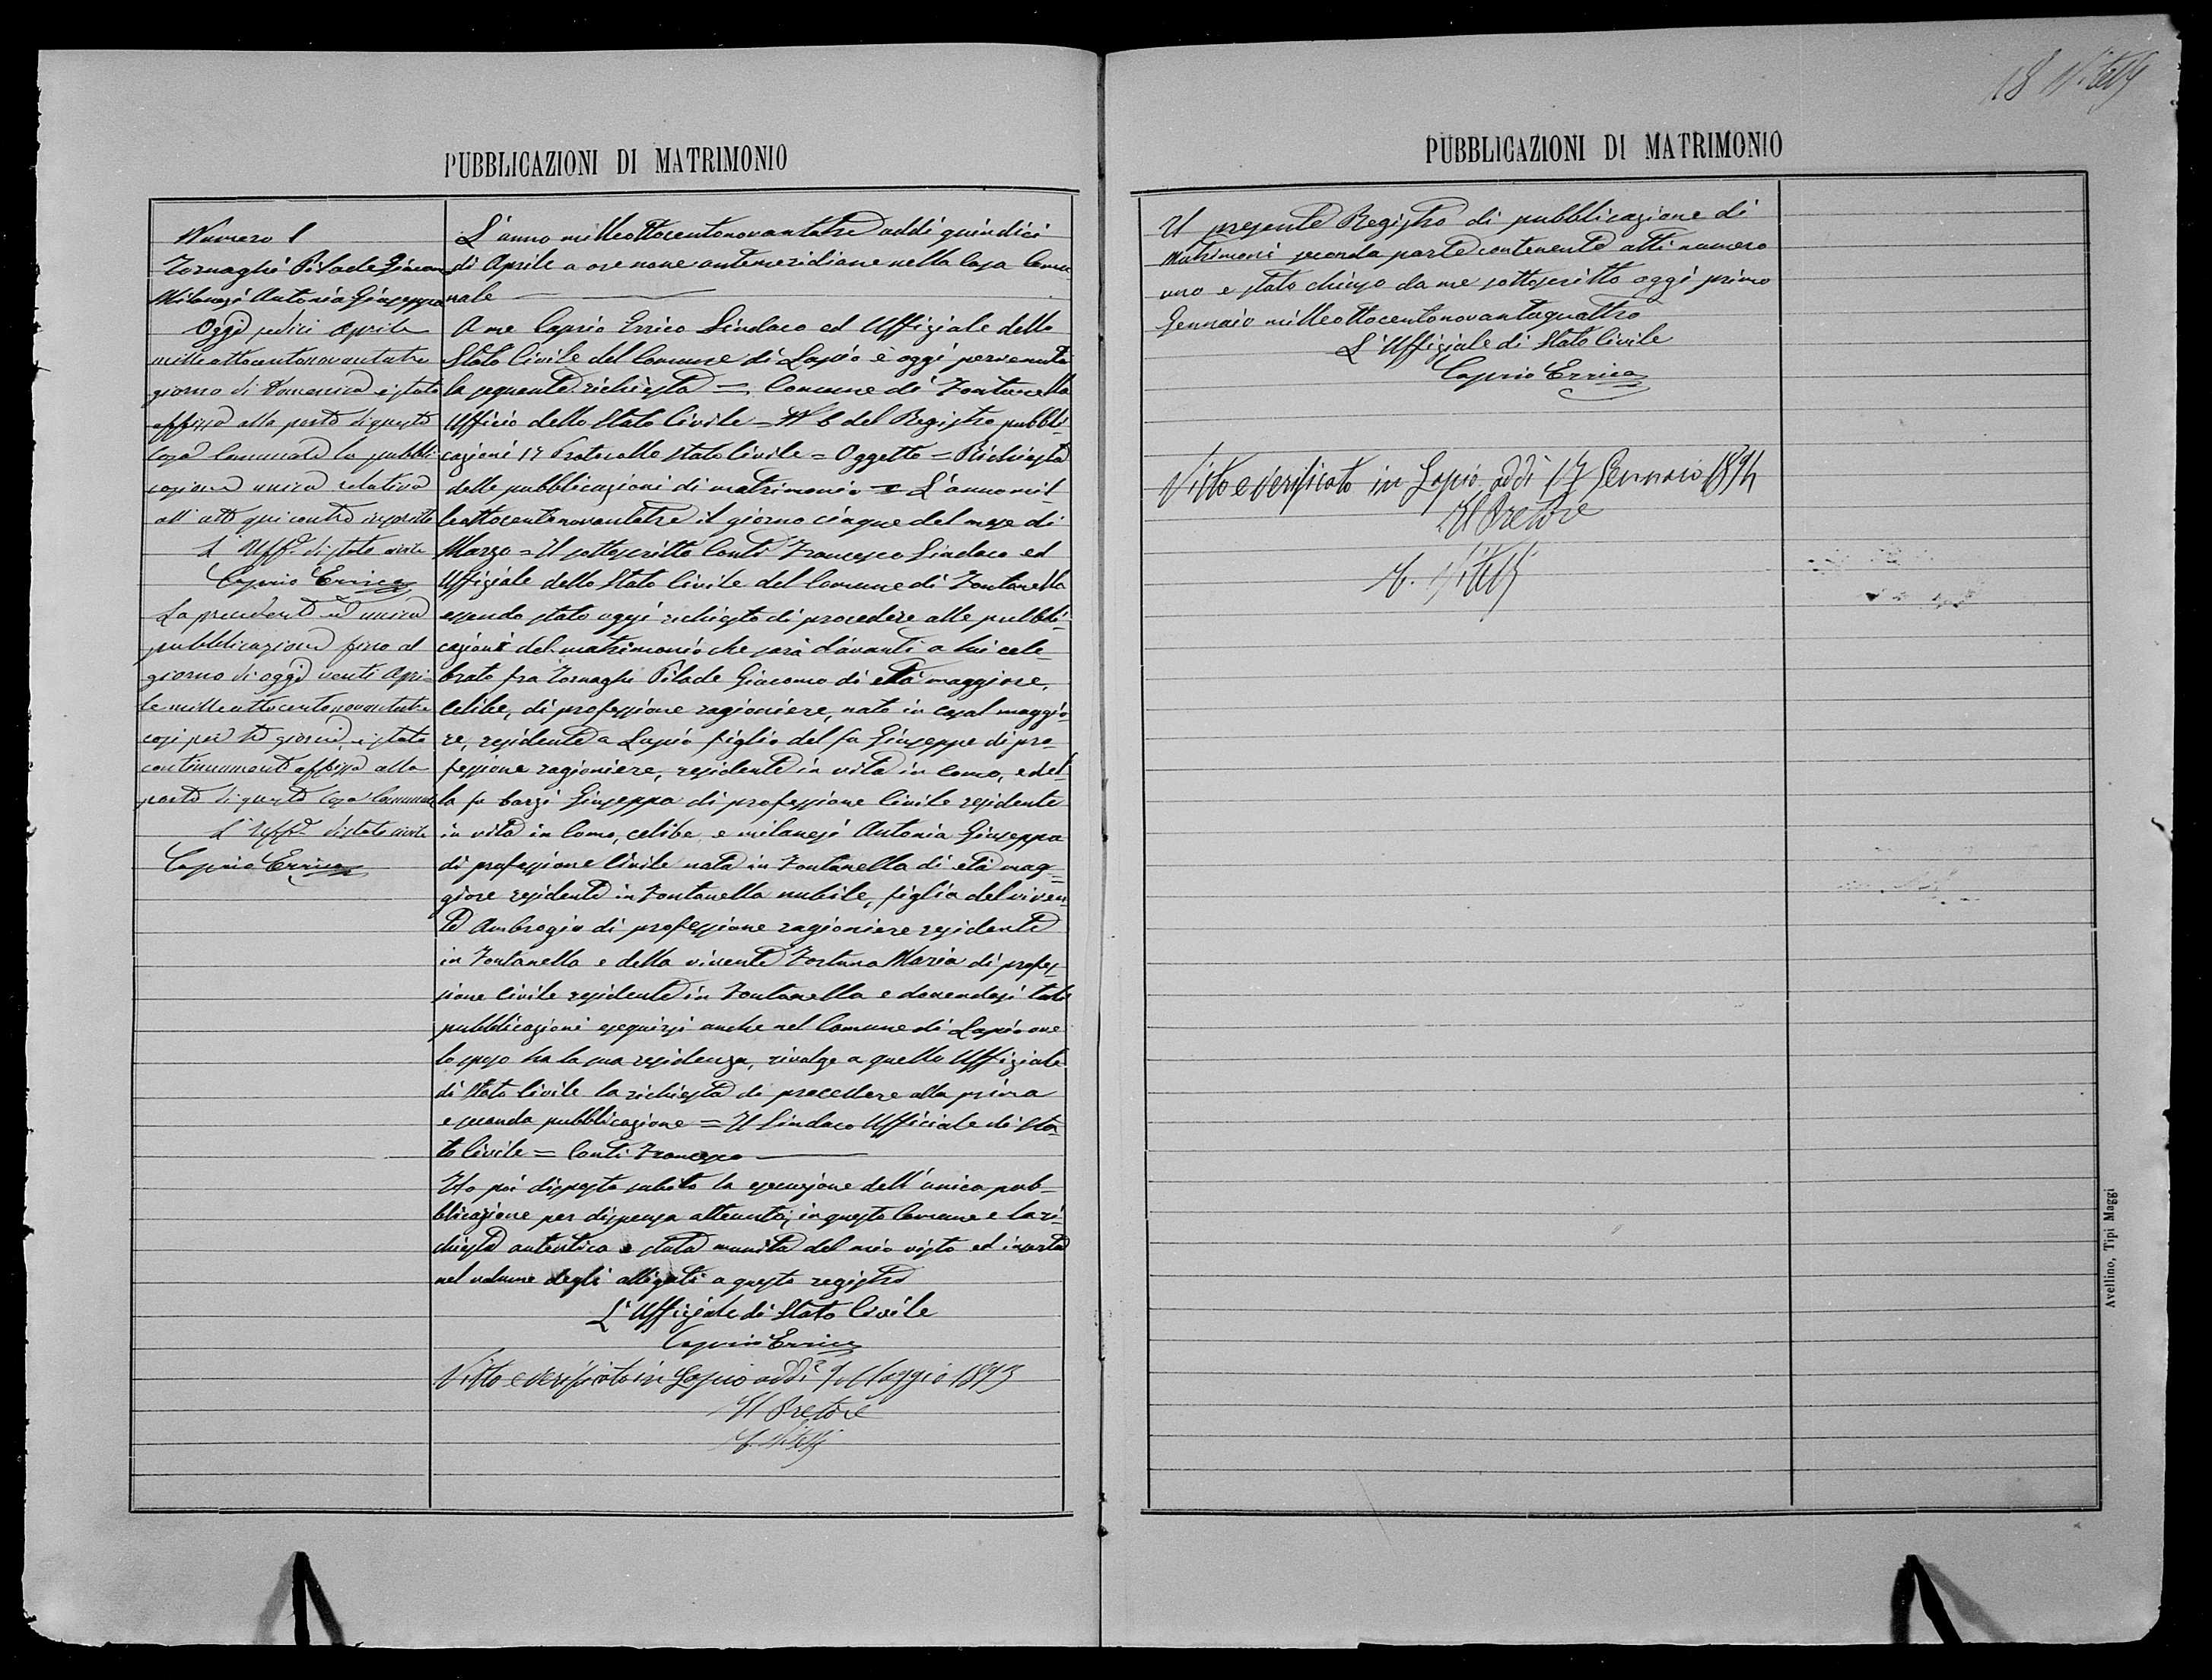 PUBBLICAZIONI DI MATRIMONIO
Numero 1
Tornaghi Pilade Giacomo
Milanesi Antonia Giuseppa
Oggi sedici Aprile
milleottocentonovantatre
giorno di Domenica è stata
affissa alla porta di questa
Casa Comunale la pubbli-
cazione unica relativa
all'atto qui contro inscritto
L'Uff.e di stato civile
Caprio Errico
La precedente ed unica
pubblicazione fino al
giorno di oggi venti Apri-
le milleottocentonovantatre
cosi per tre giorni, è stata
continuamente affissa alla
porta di questa Casa Comunale
L'Uff.e di stato civile
Caprio Errico
L'anno milleottocentonovantatre addi quindici
di Aprile a ore nove antemeridiane nella Casa Comu
nale
A me Caprio Errico Sindaco ed Uffiziale dello
Stato Civile del Comune di Lapio è oggi pervenuta
la seguente richiesta = Comune di Fontanella
Ufficio dello Stato Civile = N 6 del Registro pubbli-
cazioni 17 Protocollo stato Civile = Oggetto = Richiesta
delle pubblicazioni di matrimonio = L'anno mil
leottocentonovantatre il giorno cinque del mese di
Marzo = Il sottoscritto Conti Francesco Sindaco ed
Uffiziale dello Stato Civile del Comune di Fontanella
essendo stato oggi richiesto di procedere alle pubbli-
cazioni del matrimonio che sarà davanti a lui cele-
brato fra Tornaghi Pilade Giacomo di età maggiore,
celibe, di professione ragioniere, nato in casal maggio-
re, residente a Lapio figlio del fu Giuseppe di pro-
fessione ragioniere, residente in vita in Como, e del-
la fu Giuseppa di professione Civile residente
in vita in Como, celibe, e milanesi Antonia Giuseppa
di professione Civile nata in Fontanella di età mag-
giore residente in Fontanella nubile, figlia del viven-
te Ambrogio di professione ragioniere residente
in Fontanella e della vivente Fortuna Maria di profes-
sione civile residente in Fontanella e dovendosi tale
pubblicazioni eseguirsi anche nel Comune di Lapio ove
lo sposo ha la sua residenza, rivolge a quello Uffiziale
di Stato Civile la richiesta di procedere alla prima
e seconda pubblicazione = Il Sindaco Ufficiale di sta-
to Civile = Conti Francesco
Ho poi disposto subito la esecuzione dell'unica pub-
blicazione per dispensa ottenuta, in questo Comune e la ri-
chiesta autentica è stata munita del mio visto ed inserta
nel volume degli alligati a questo registro
L'Uffiziale di Stato Civile
Caprio Errico
Visto e verificato in Lapio addì 9 Maggio 1893
Il Pretore
Vitelli
18 Vitelli
PUBBLICAZIONI DI MATRIMONIO
Il presente Registro di pubblicazione di
Matrimoni seconda parte contenente atti numero
uno è stato chiuso da me sottoscritto oggi primo
Gennaio milleottocentonovantaquattro
L'Uffiziale di Stato Civile
Caprio Errico
Visto e verificato in Lapio addì 17 Gennaio 1894
Il Pretore
Vitelli
Avellino, Tipi Maggi